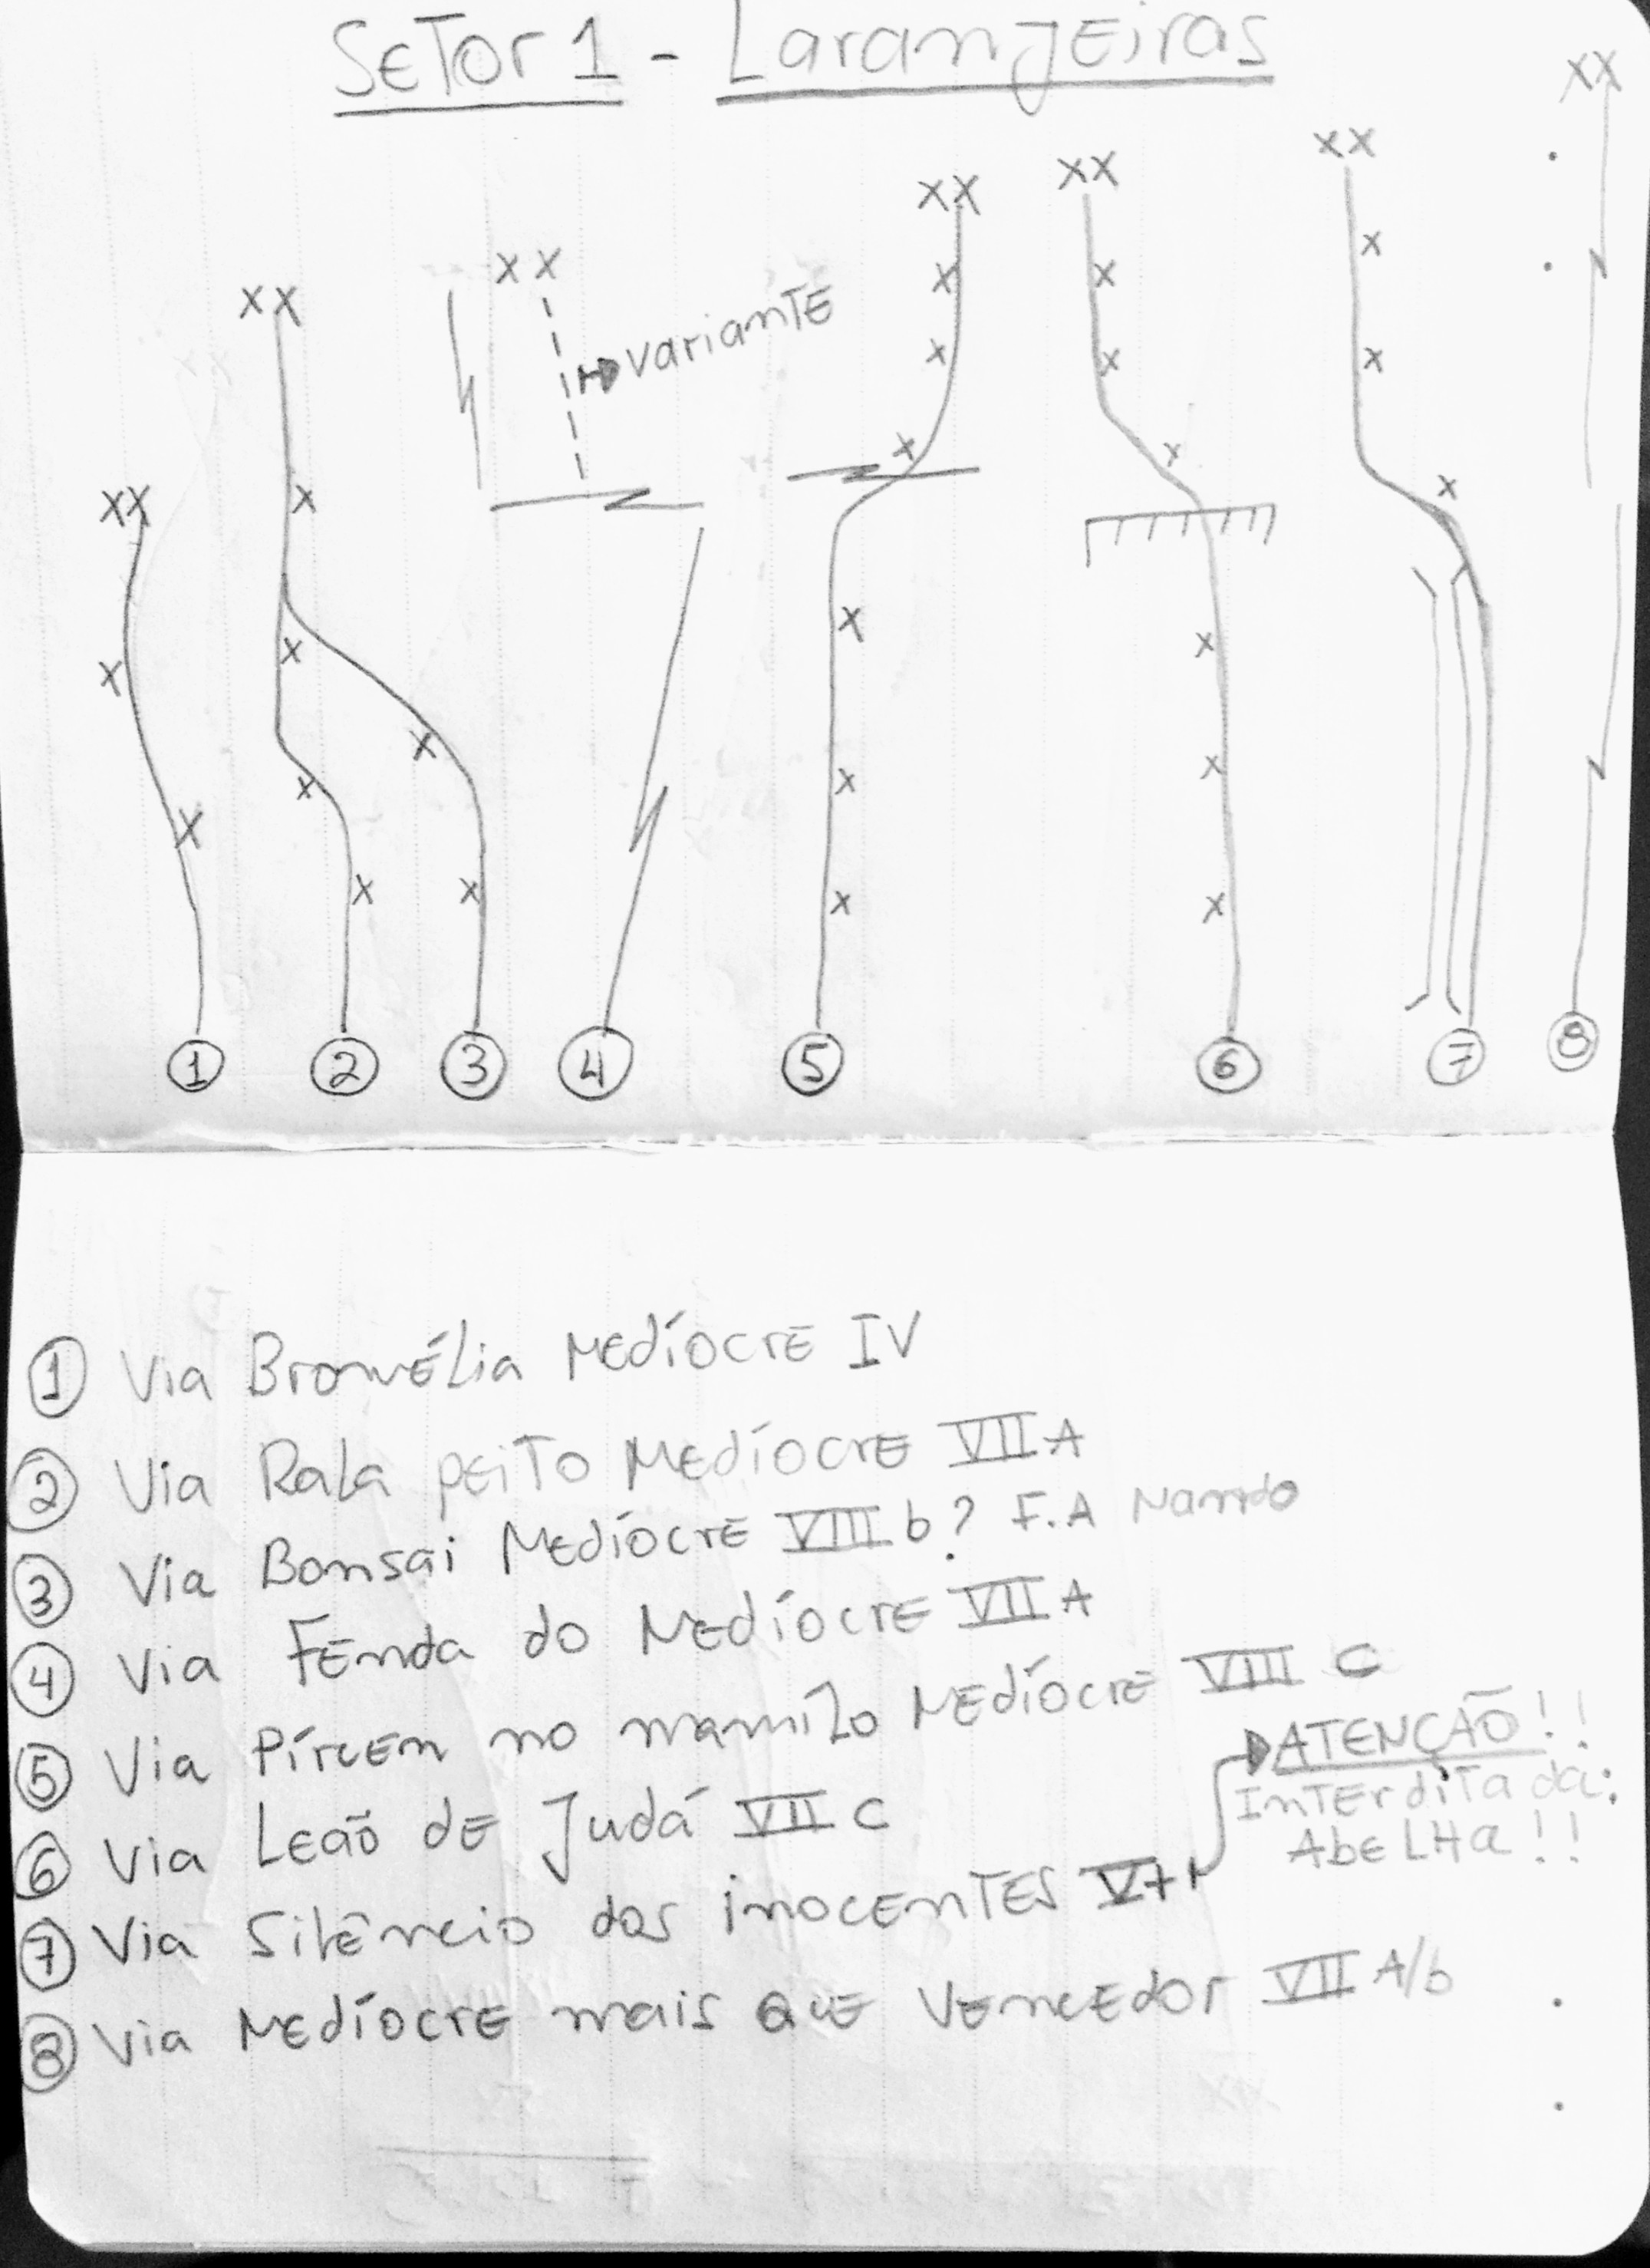 SETor 1 - LaranJEiras
XX
XX
XX
XX
XX
XX
XX
variantE
1 2 3 4 5 6 7 8
1 Via BromÉLia MEdíocrE IV
2 Via RaLa pEiTo MEdíocrE VII A
3 Via Bonsai MEdíocrE VIII b? F.A Nando
4 Via FEnda do MEdíocrE VII A
5 Via PírcEn no mamiLo MEdíocrE VIII C
6 Via LEão dE Judá VII C
ATENÇÃO!!
InTErdiTada:
AbELHa!!
7 Via SiLÊncio dos inocEnTES V+
8 Via MEdíocrE mais QuE VEncEdor VII A/b